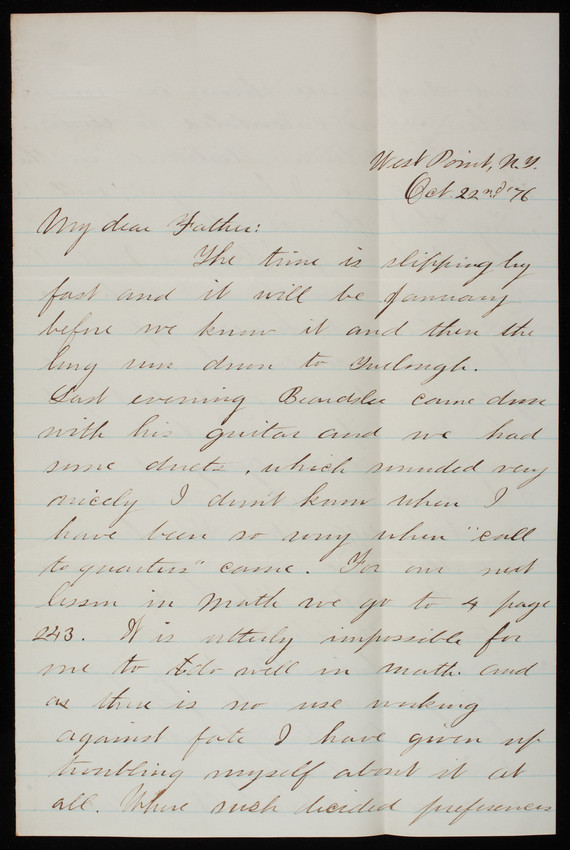 West Point, N.Y.
Oct. 22nd '76
My dear Father:
The time is slipping by
fast and it will be January
before we know it and then the
long run down to Furlough.
Last evening Beardslee came down
with his guitar and we had
some duets, which sounded very
nicely I don't know when I
have been so sorry when "call
to quarters" came. For our next
lesson in Math we go to 4 page
243. It is utterly impossible for
me to do well in math and
as there is no use working
against fate I have given up
troubling myself about it at
all. Where such decided preferences